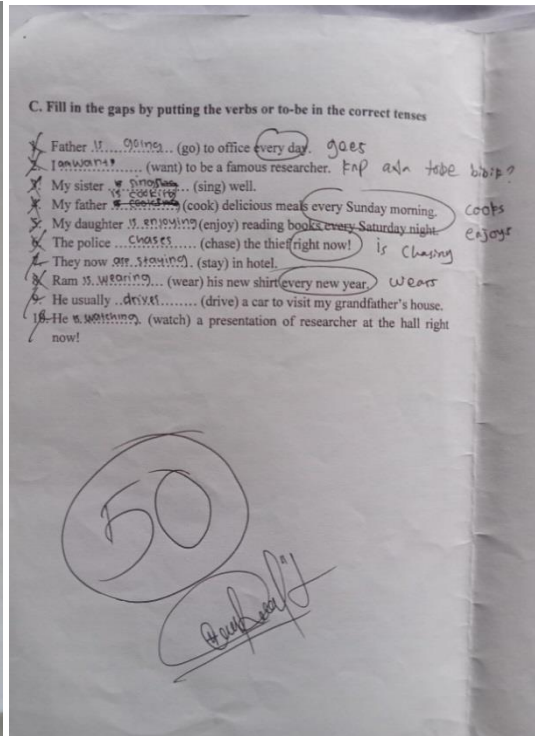 C. Fill in the gaps by putting the verbs or to-be in the correct tenses
Father is going (go) to office every day. goes
I am want (want) to be a famous researcher. knp ada to be
My sister singing (sing) well.
My father is cooking (cook) delicious meals every Sunday morning. cooks
My daughter is enjoying (enjoy) reading books every Saturday night. enjoys
The police chases (chase) the thief right now! is chasing
They now are staying. (stay) in hotel.
8. Ram is wearing (wear) his new shirt every new year. wears
9. He usually drives (drive) a car to visit my grandfather's house.
10. He is watching (watch) a presentation of researcher at the hall right
now!
50